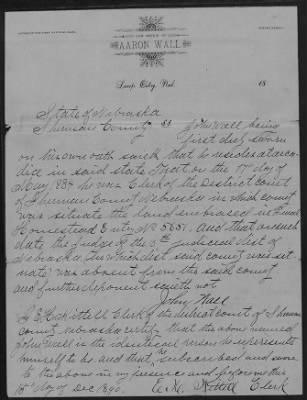 LAW OFFICE OF
AARON WALL
Loup City, Neb. 18
State of Nebraska
Sherman County SS John Wall being
first duly sworn
on his own oath saith that he resides at Arca-
dia in said state that on the 17" day of
May 1884 he was Clerk of the District court
of Sherman County Nebraska in which county
was situate the land embraced in Final
Homestead Entry No 5651. And that on such
date the Judge of the 5th Judicial Dist of
Nebraska (in which dist said county was sit-
uate) was absent from the said county
and further deponent sayeth not
John Wall
I Clerk of the district court of Sherman
county Nebraska certify that the above named
John Wall is the identical person he represents
himself to be. and that Subscribed and sworn
to the above in my presence and before me this
15" day of Dec 1890.
Clerk